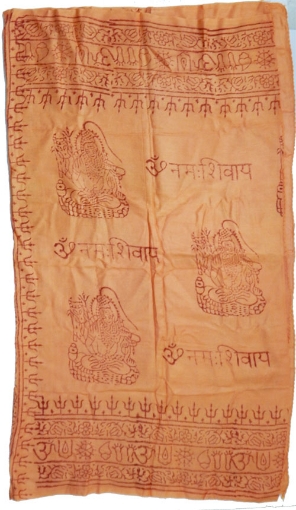 ॐ नमःशिवाय
ॐ नमःशिवाय
ॐ नमःशिवाय